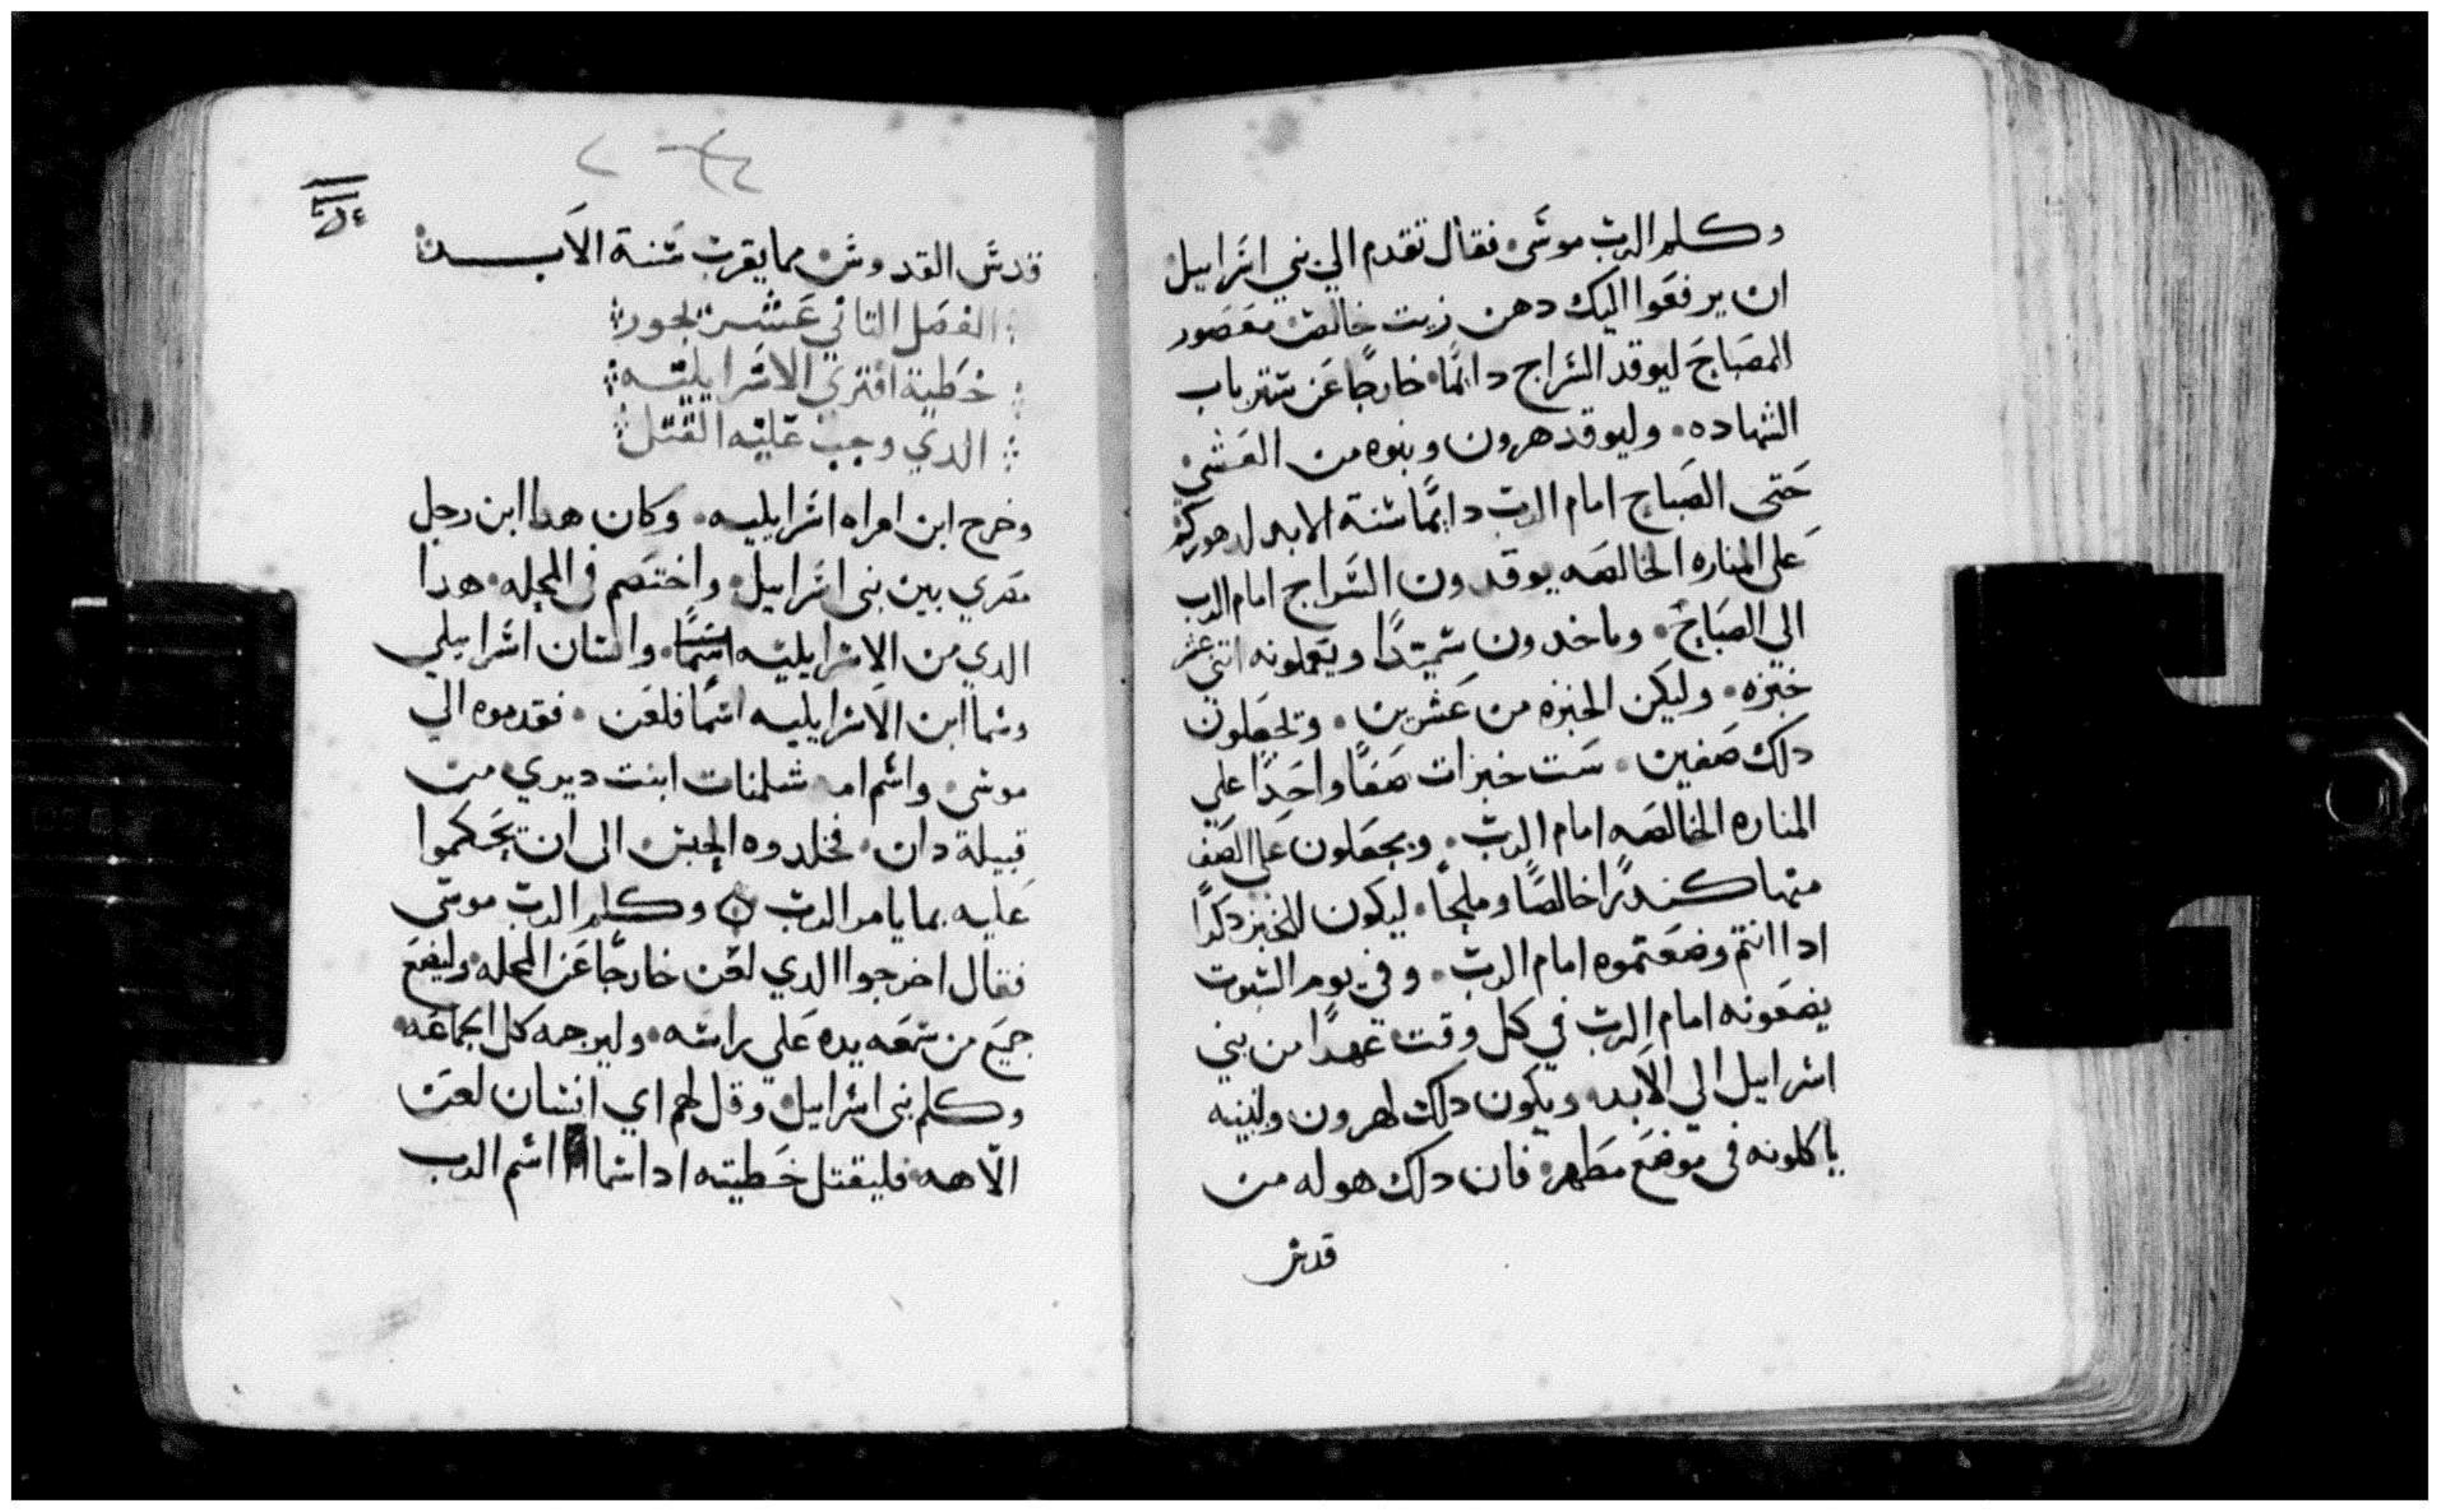 وكلم الرب موسى فقال تقدم الي بني اسراييل
ان يرفعوا اليك دهن زيت خالص معصور
المصباح ليوقد السراج دايما خارجا عن ستر باب
الشهاده وليوقد هرون وبنوه من العشي
حتى الصباح امام الرب دايما سنة الابد
على المناره الخالصه يوقدون السراج امام الرب
الي الصباح وياخدون سميدا ويعملونه اتني عشر
خبزه وليكن الخبزه من عشرين وتجعلون
دلك صفين ست خبزات صفا واحدا علي
المناره الخالصه امام الرب ويجعلون على الصف
منها كندرا خالصا وملحا ليكون للخبز دكرا
ادا انتم وضعتموه امام الرب وفي يوم السبوت
يضعونه امام الرب في كل وقت عهدا من بني
اسراييل الي الابد ويكون دلك لهرون ولبنيه
ياكلونه في موضع مطهر فان دلك هو له من
قدس
قدس القدوس مما يقرب سنة الابد
الفصل التاني عشر لجور
خطية افتري الاسراييليه
الدي وجب عليه القتل
وخرج ابن امراه اسراييليه وكان هدا ابن رجل
مصري بين بني اسراييل واختصم في المحله هدا
الدي من الاسراييليه اسما وانسان اسراييلي
وسما ابن الاسراييليه اسما فلعن فقدموه الي
موسى واسم امه شلمنات ابنت ديري من
قبيلة دان فخلدوه الحبس الى ان يحكموا
عليه بما يامر الرب وكلم الرب موسى
فقال اخرجوا الدي لعن خارجا عن المحله وليضع
جميع من سمعه يده علي راسه وليرجمه كل الجماعه
وكلم بني اسراييل وقل لهم اي انسان لعن
الاهه فليقتل خطيته ادا سما اسم الرب